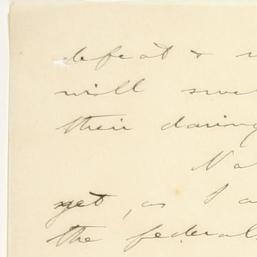 defeat &
will
their daring
yet, as I
the federal